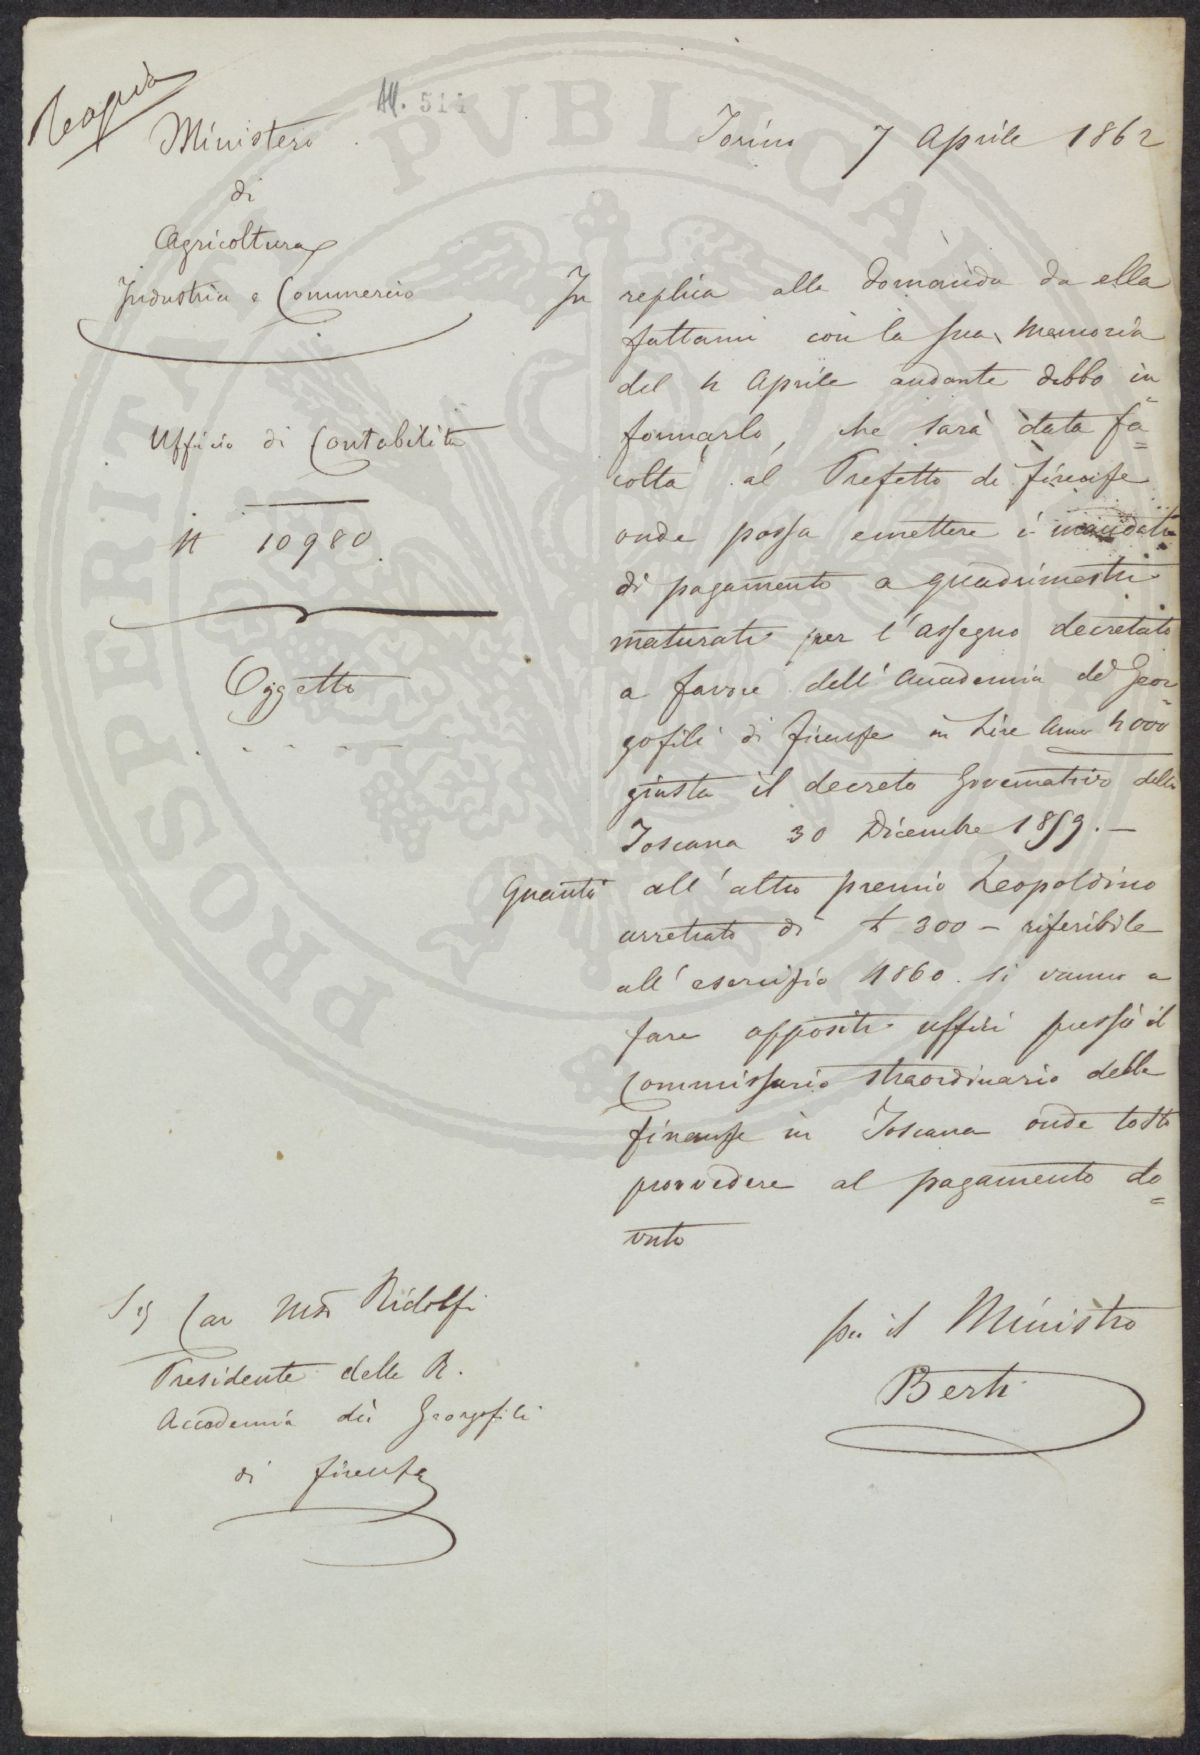 Copia
All. 514
Ministero
di
Agricoltura
Industria e Commercio
Ufficio di Contabilità
N 10980
Oggetto
Torino 7 Aprile 1862
In replica alla domanda da ella
fattami con la sua memoria
del 4 Aprile andante debbo in=
formarlo, che sarà data fa=
coltà al Prefetto di Firenze
onde possa emettere i mandati
di pagamento a quadrimestri
maturati per l'assegno decretato
a favore dell'Accademia dei Geor=
gofili di Firenze in Lire Annue 4000
giusta il decreto Governativo della
Toscana 30 Dicembre 1859. —
Quanto all'altro premio Leopoldino
arretrato di £ 300 — riferibile
all'esercizio 1860. si vanno a
fare appositi uffici presso il
Commissario straordinario delle
finanze in Toscana onde tosto
provvedere al pagamento do=
vuto
per il Ministro
Berti
Sig Cav Ridolfi
Presidente della R.
Accademia dei Georgofili
di Firenze
PROSPERITATI PVBLICAE